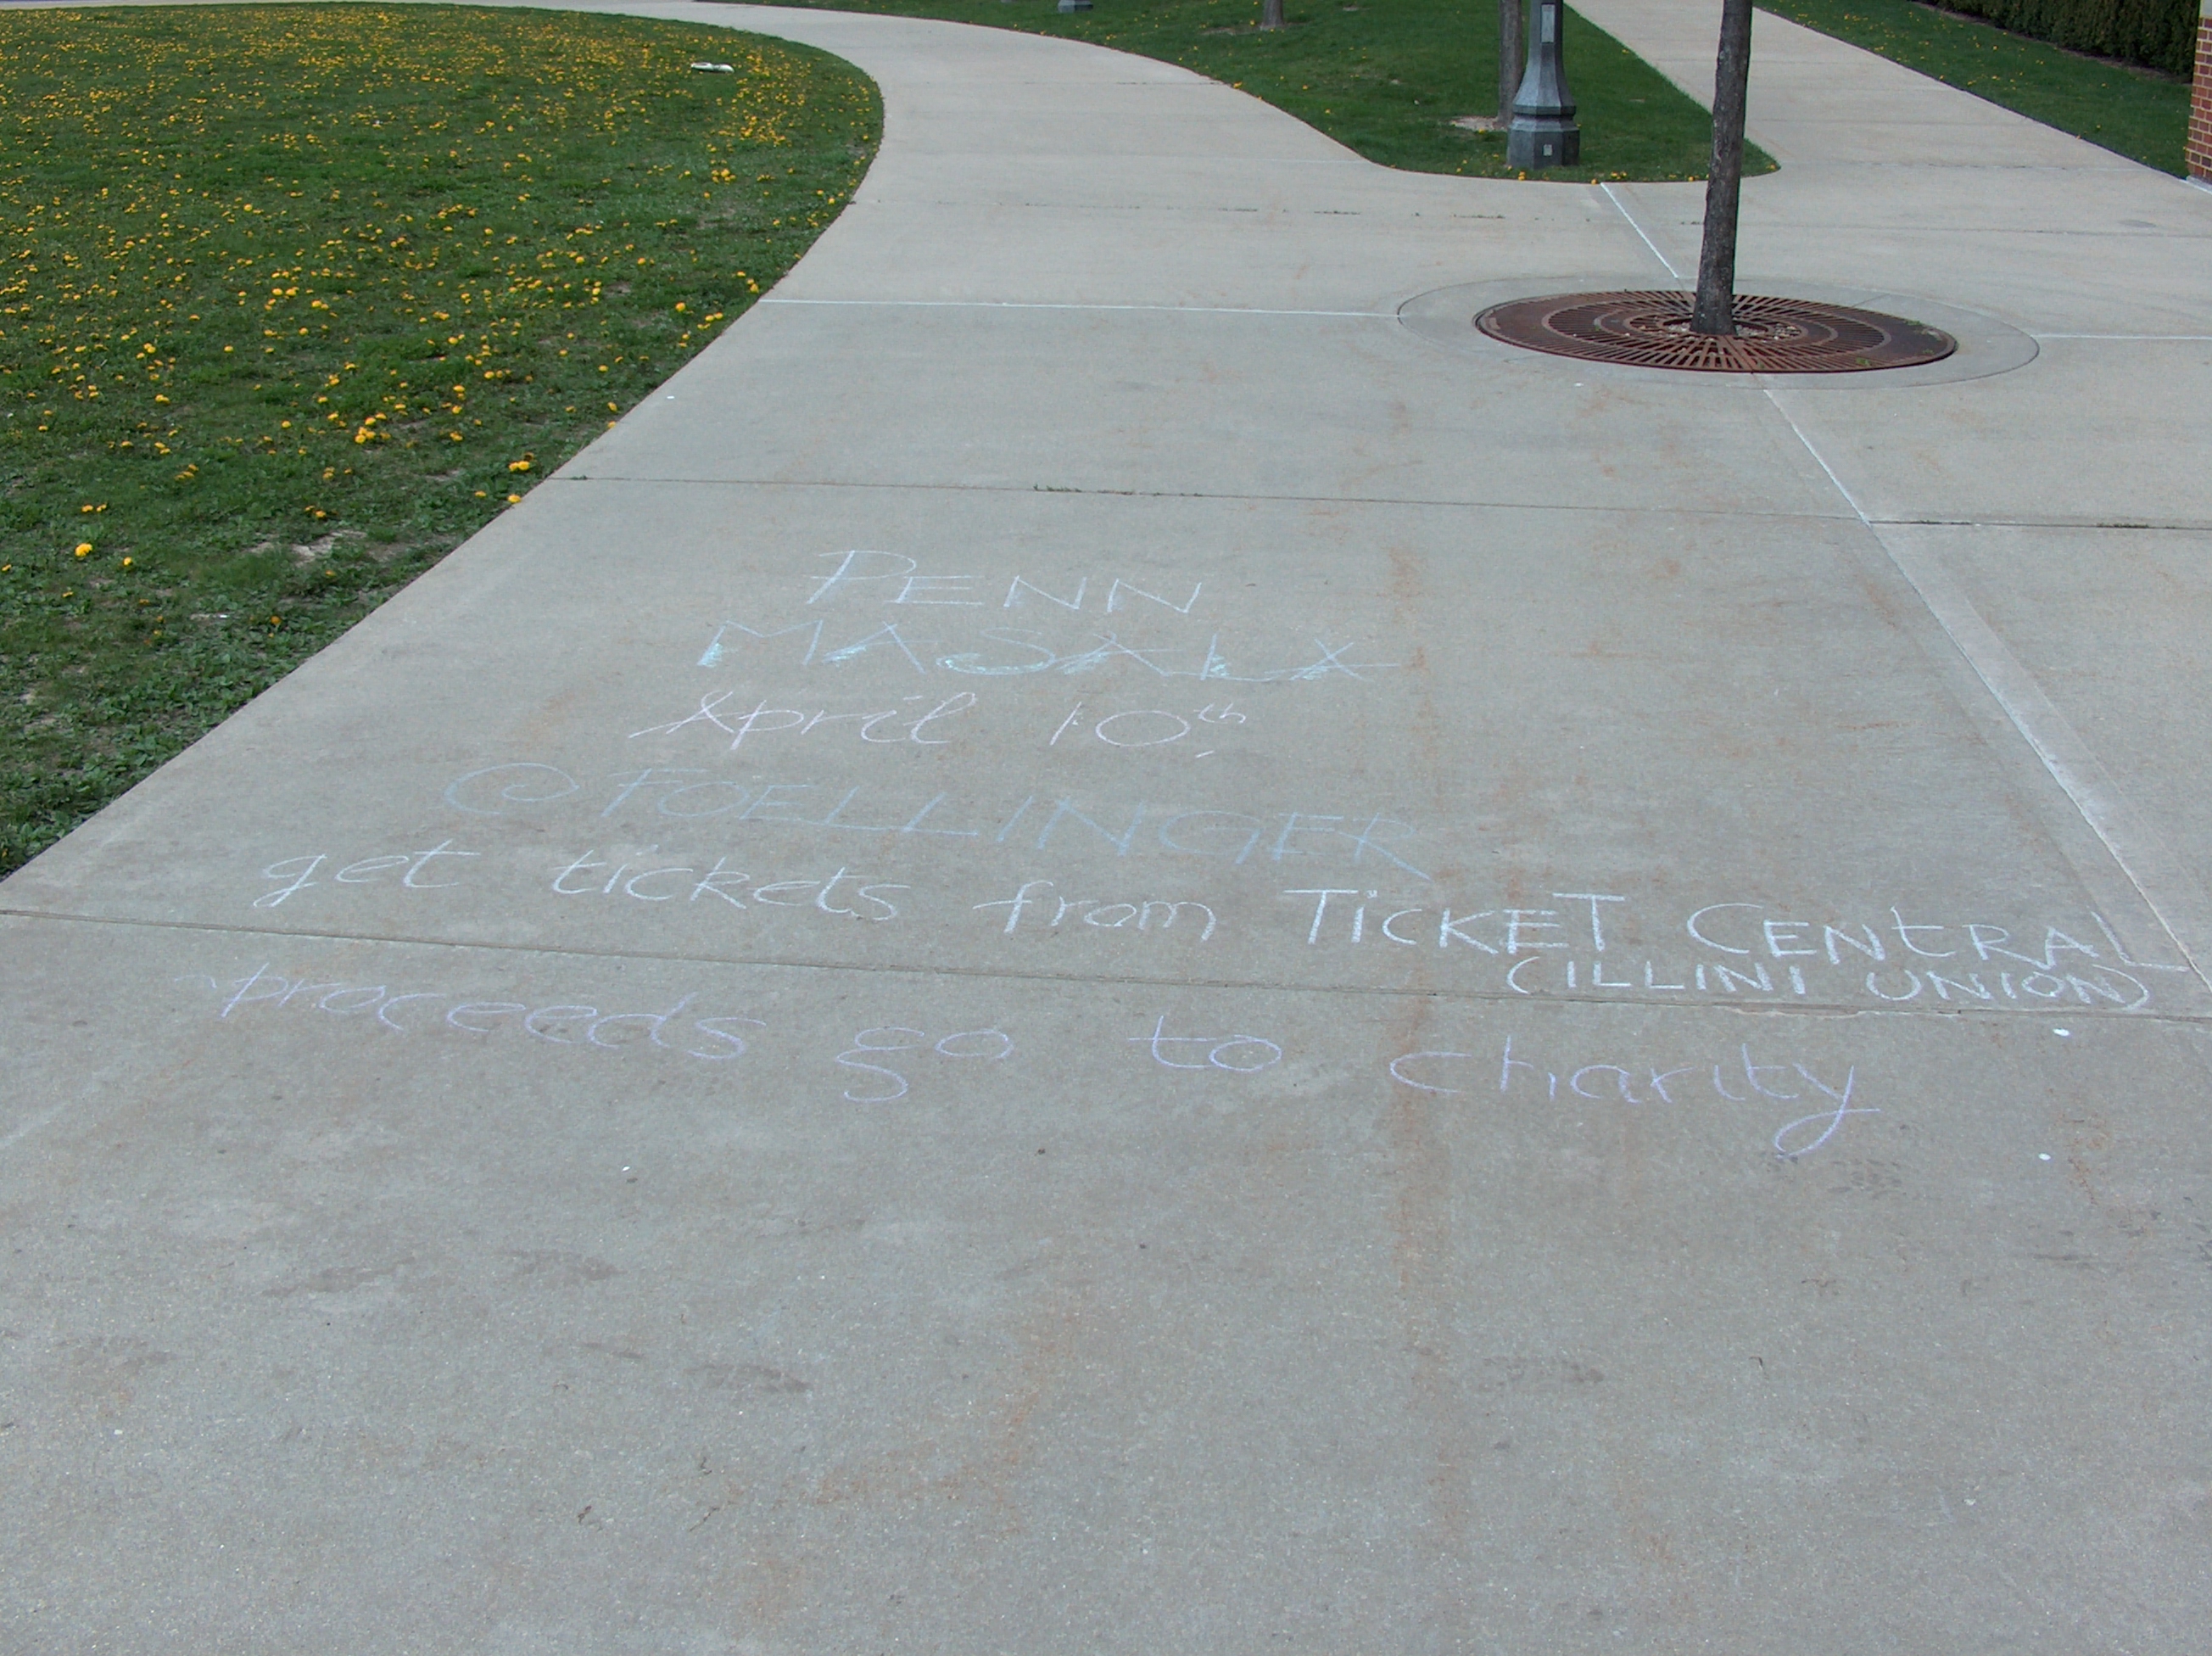 PENN
MASALA
April 10th,
@ FOELLINGER
get tickets from TICKET CENtRAL
(ILLINI UNION)
~proceeds go to charity